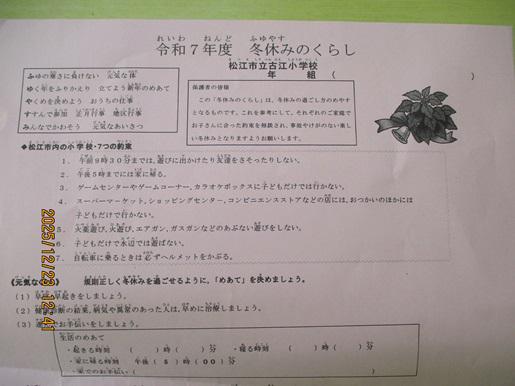 れいわ ねんど ふゆやす
令和７年度 冬休みのくらし
松江市立古江小学校
年 組（ ）
ふゆの寒さに負けない 元気な体
ゆく年をふりかえり 立てよう新年のめあて
やくめを決めよう おうちの仕事
すすんで参加 正月行事 地区行事
みんなでかわそう 元気なあいさつ
保護者の皆様
この「冬休みのくらし」は、冬休みの過ごし方のめやす
となるものです。これを参考にして、それぞれのご家庭で
お子さんに合った約束を相談され、事故やけがのない楽し
い冬休みとなりますようお願いします。
◆松江市内の小学校・７つの約束
１． 午前９時３０分までは、遊びに出かけたり友達をさそったりしない。
２． 午後５時までには家に帰る。
３． ゲームセンターやゲームコーナー、カラオケボックスに子どもだけで行かない。
４． スーパーマーケット、ショッピングセンター、コンビニエンスストアなどの店には、おつかいのほかには
子どもだけで行かない。
５． 火薬遊び、火遊び、エアガン、ガスガンなどのあぶない遊びをしない。
６． 子どもだけで水辺では遊ばない。
７． 自転車に乗るときは必ずヘルメットをかぶる。
《元気なくらし》 規則正しく冬休みを過ごせるように、「めあて」を決めましょう。
（１）早寝・早起きをしましょう。
（２）健康診断の結果、病気や異常のあった人は、早めに治療しましょう。
（３）進んでお手伝いをしましょう。
生活のめあて
・起きる時刻 （ ）時（ ）分 ・寝る時刻 （ ）時（ ）分
・家に帰る時刻 午後（ ５ ）時（ ００ ）分
・家でのお手伝い（
2025/12/23 12:41